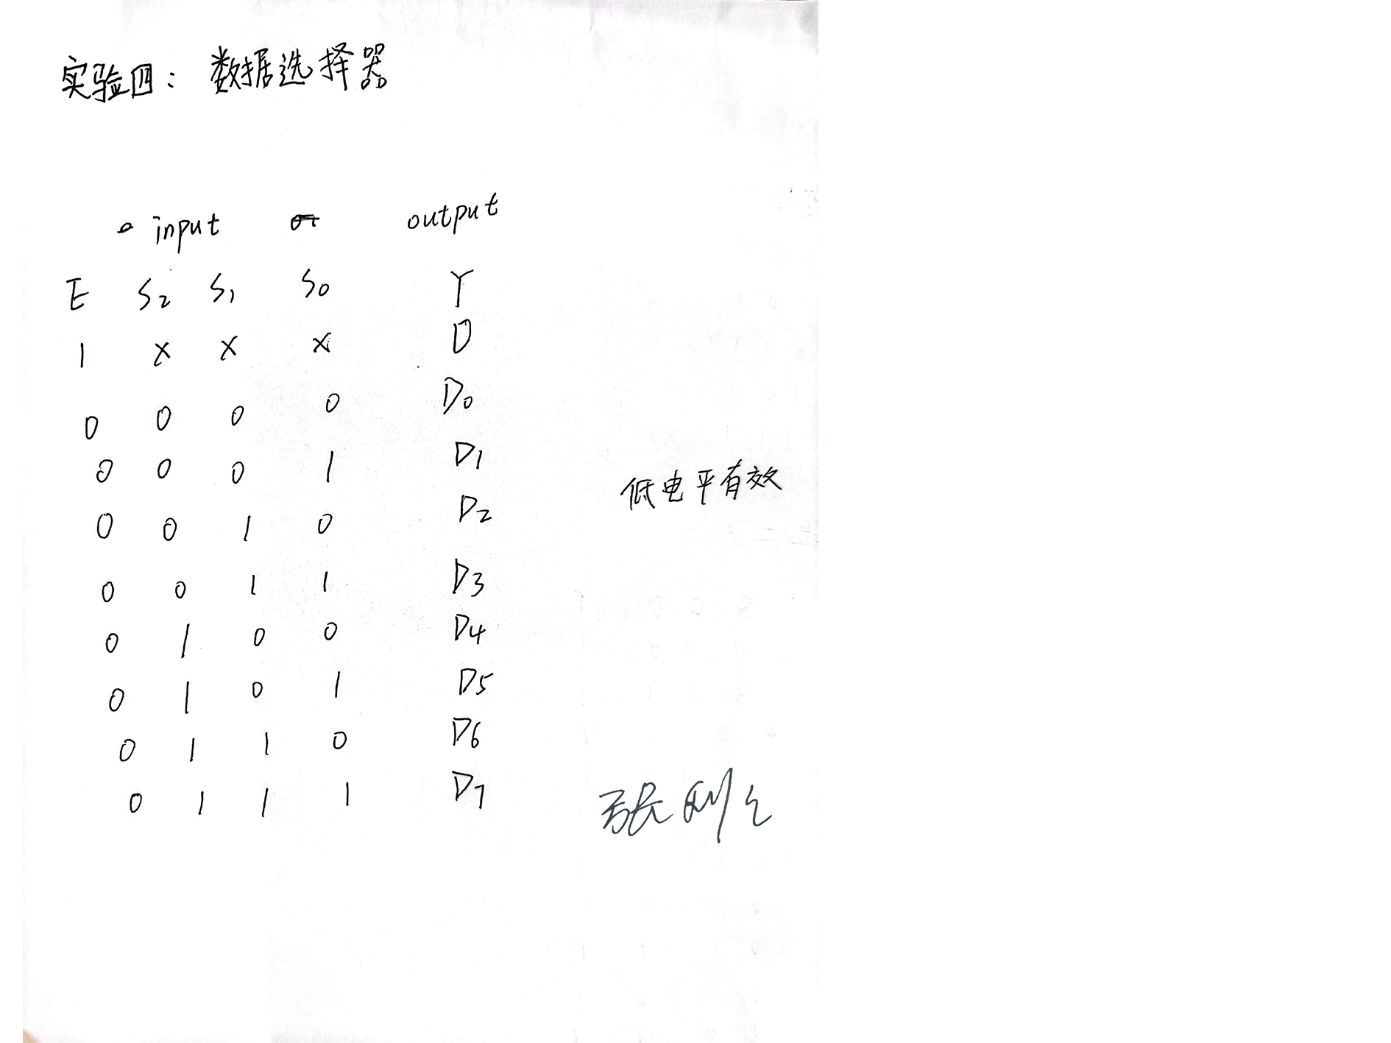 实验四：数据选择器
input output
E S₂ S₁ S₀ Y
1 × × × 0
0 0 0 0 D₀
0 0 0 1 D₁
0 0 1 0 D₂
低电平有效
0 0 1 1 D₃
0 1 0 0 D₄
0 1 0 1 D₅
0 1 1 0 D₆
0 1 1 1 D₇